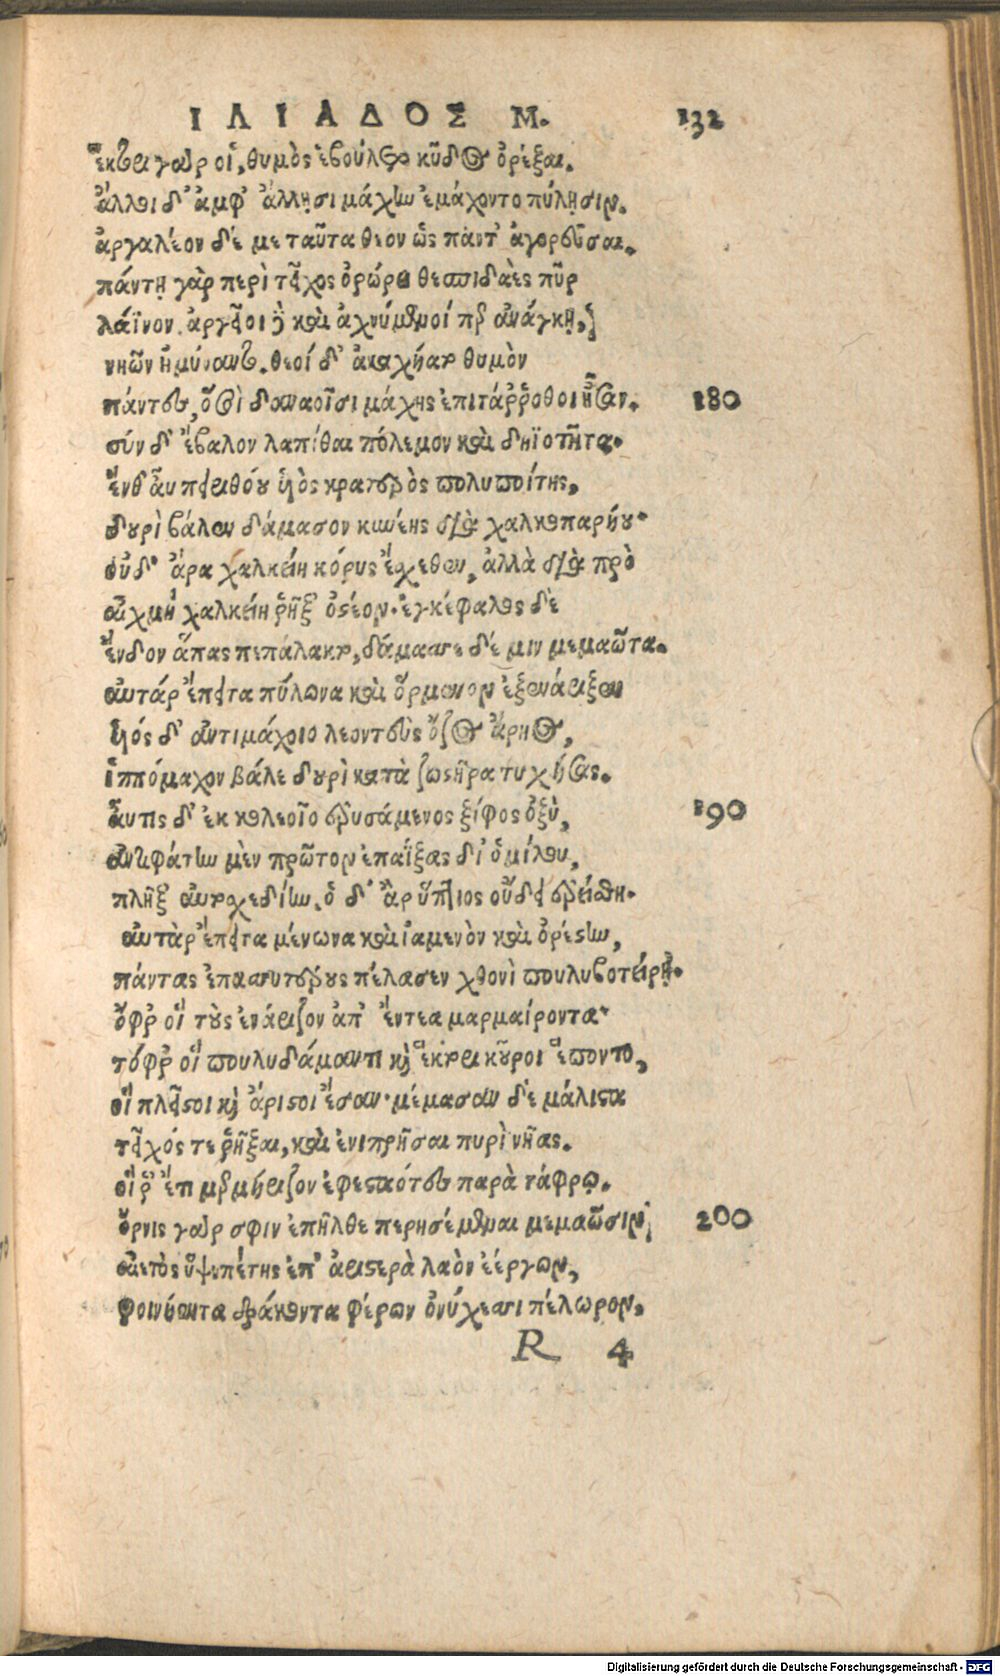 ΙΛΙΑΔΟΣ Μ. 132
ἕκτορι γάρ οἱ, θυμὸς ἐβούλετο κῦδος ὀρέξαι.
ἄλλοι δ' ἀμφ' ἄλλῃσι μάχην ἐμάχοντο πύλῃσιν.
ἀργαλέον δέ με ταῦτα θεὸν ὣς πάντ' ἀγορεῦσαι.
πάντῃ γὰρ περὶ τεῖχος ὀρώρει θεσπιδαὲς πῦρ
λάϊνον. ἀργεῖοι δὲ καὶ ἀχνύμενοί περ ἀνάγκῃ,
νηῶν ἠμύναντο. θεοί δ' ἀκαχήατο θυμὸν
πάντες, ὅσοι δαναοῖσι μάχης ἐπιτάῤῥοθοι ἦσαν. 180
σύν δ' ἔβαλον λαπίθαι πόλεμον καὶ δηϊοτῆτα.
ἔνθ' αὖ πειριθόου υἱὸς κρατερὸς πολυποίτης,
δουρὶ βάλεν δάμασον κυνέης διὰ χαλκοπαρῄου.
οὐδ' ἄρα χαλκείη κόρυς ἔσχεθεν, ἀλλὰ διὰ πρὸ
αἰχμὴ χαλκείη ῥῆξ' ὀστέον. ἐγκέφαλος δὲ
ἔνδον ἅπας πεπάλακτο, δάμασσε δέ μιν μεμαῶτα.
αὐτάρ ἔπειτα πύλωνα καὶ ὄρμενον ἐξενάριξεν
υἱός δ' ἀντιμάχοιο λεοντεὺς ὄζος ἄρηος,
ἱππόμαχον βάλε δουρὶ κατὰ ζωστῆρα τυχήσας.
αὖτις δ' ἐκ κολεοῖο ἐρυσάμενος ξίφος ὀξὺ, 190
ἀντιφάτην μὲν πρῶτον ἐπαΐξας δι' ὁμίλου,
πλῆξ' αὐτοσχεδίην. ὁ δ' ἂρ ὕπτιος οὔδει ἐρείσθη.
αὐτὰρ ἔπειτα μένωνα καὶ ἰαμενὸν καὶ ὀρέστην,
πάντας ἐπασσυτέρους πέλασεν χθονὶ πουλυβοτείρῃ.
ὄφρ' οἳ τοὺς ἐνάριζον ἀπ' ἔντεα μαρμαίροντα.
τόφρ' οἳ πουλυδάμαντι καὶ ἕκτορι κοῦροι ἕποντο,
οἳ πλεῖστοι καὶ ἄριστοι ἔσαν. μέμασαν δὲ μάλιστα
τεῖχός τε ῥῆξαι, καὶ ἐνιπρῆσαι πυρὶ νῆας.
οἵ ῥ' ἔτι μερμήριζον ἐφεσταότες παρὰ τάφρῳ.
ὄρνις γάρ σφιν ἐπῆλθε περησέμεναι μεμαῶσιν, 200
αἰετὸς ὑψιπέτης ἐπ' ἀριστερὰ λαὸν ἐέργων,
φοινήεντα δράκοντα φέρων ὀνύχεσσι πέλωρον.
R 4
Digitalisierung gefördert durch die Deutsche Forschungsgemeinschaft - DFG